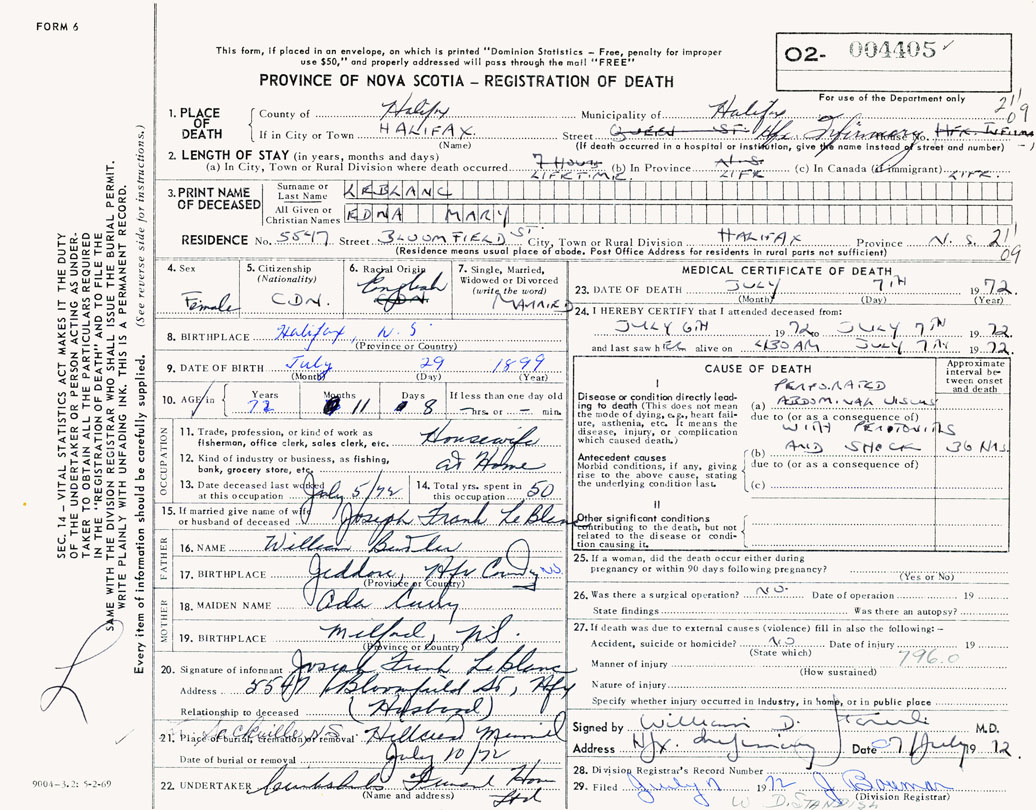 FORM 6
This form, if placed in an envelope, on which is printed "Dominion Statistics – Free, penalty for improper
use $50," and properly addressed will pass through the mail "FREE"
PROVINCE OF NOVA SCOTIA – REGISTRATION OF DEATH
O2- 004405
For use of the Department only
211
09
1. PLACE OF DEATH
County of Halifax Municipality of Halifax
If in City or Town HALIFAX. Street QUEEN ST. Hfx. Infirmary House No. HFX. INFIRM
(Name) (If death occurred in a hospital or institution, give the name instead of street and number)
2. LENGTH OF STAY (in years, months and days)
(a) In City, Town or Rural Division where death occurred 7 Hours LIFETIME. (b) In Province N.S. LIFE (c) In Canada (if immigrant) LIFE.
3. PRINT NAME OF DECEASED
Surname or Last Name LEBLANC
All Given or Christian Names EDNA MARY
RESIDENCE No. 5547 Street BLOOMFIELD ST. City, Town or Rural Division HALIFAX Province N.S. 211
09
(Residence means usual place of abode. Post Office Address for residents in rural parts not sufficient)
4. Sex
Female
5. Citizenship
(Nationality)
CDN.
6. Racial Origin
English
CDN.
7. Single, Married,
Widowed or Divorced
(write the word)
MARRIED
8. BIRTHPLACE Halifax, N.S
(Province or Country)
9. DATE OF BIRTH July 29 1899
(Month) (Day) (Year)
10. AGE in Years 72 Months 11 Days 8 If less than one day old
– hrs. or – min.
OCCUPATION
11. Trade, profession, or kind of work as
fisherman, office clerk, sales clerk, etc. Housewife
12. Kind of industry or business, as fishing,
bank, grocery store, etc. at Home
13. Date deceased last worked
at this occupation July 5/72
14. Total yrs. spent in
this occupation 50
15. If married give name of wife
or husband of deceased Joseph Frank LeBlanc
FATHER
16. NAME William
17. BIRTHPLACE Jeddore, Hfx County NS.
(Province or Country)
MOTHER
18. MAIDEN NAME Ada
19. BIRTHPLACE Milford, NS.
(Province or Country)
20. Signature of informant Joseph Frank LeBlanc
Address 5547 Bloomfield St, Hfx
Relationship to deceased (Husband)
Sackville N.S.
21. Place of burial, cremation or removal
Date of burial or removal July 10/72
22. UNDERTAKER Cruikshanks Funeral Home
Ltd
(Name and address)
MEDICAL CERTIFICATE OF DEATH
23. DATE OF DEATH JULY 7TH 1972.
(Month) (Day) (Year)
24. I HEREBY CERTIFY that I attended deceased from:
JULY 6TH 1972 to JULY 7TH 1972.
and last saw hER alive on 4:30 AM JULY 7TH 1972.
CAUSE OF DEATH
Approximate
interval be-
tween onset
and death
I
Disease or condition directly lead-
ing to death (This does not mean
the mode of dying, e.g., heart fail-
ure, asthenia, etc. It means the
disease, injury, or complication
which caused death.)
PERFORATED
(a) ABDOMINAL VISCUS
due to (or as a consequence of)
WITH PERITONITIS
(b) AND SHOCK 36 HRS.
due to (or as a consequence of)
(c)
Antecedent causes
Morbid conditions, if any, giving
rise to the above cause, stating
the underlying condition last.
II
Other significant conditions
contributing to the death, but not
related to the disease or condi-
tion causing it.
25. If a woman, did the death occur either during
pregnancy or within 90 days following pregnancy?
(Yes or No)
26. Was there a surgical operation? NO. Date of operation 19
State findings Was there an autopsy?
27. If death was due to external causes (violence) fill in also the following: –
Accident, suicide or homicide? NO Date of injury 19
(State which) 796.0
Manner of injury
(How sustained)
Nature of injury
Specify whether injury occurred in industry, in home, or in public place
Signed by William D. M.D.
Address Hfx. Infirmary Date 07 July 1972.
28. Division Registrar's Record Number
29. Filed July 7 1972 J. Bowman
(Division Registrar)
W D. STANDISH
SEC. 14 – VITAL STATISTICS ACT MAKES IT THE DUTY
OF THE UNDERTAKER OR PERSON ACTING AS UNDER-
TAKER TO OBTAIN ALL THE PARTICULARS REQUIRED
IN THE "REGISTRATION OF DEATH" AND TO FILE THE
SAME WITH THE DIVISION REGISTRAR WHO SHALL ISSUE THE BURIAL PERMIT.
WRITE PLAINLY WITH UNFADING INK. THIS IS A PERMANENT RECORD.
Every item of information should be carefully supplied. (See reverse side for instructions.)
9004-3.2: 5-2-69